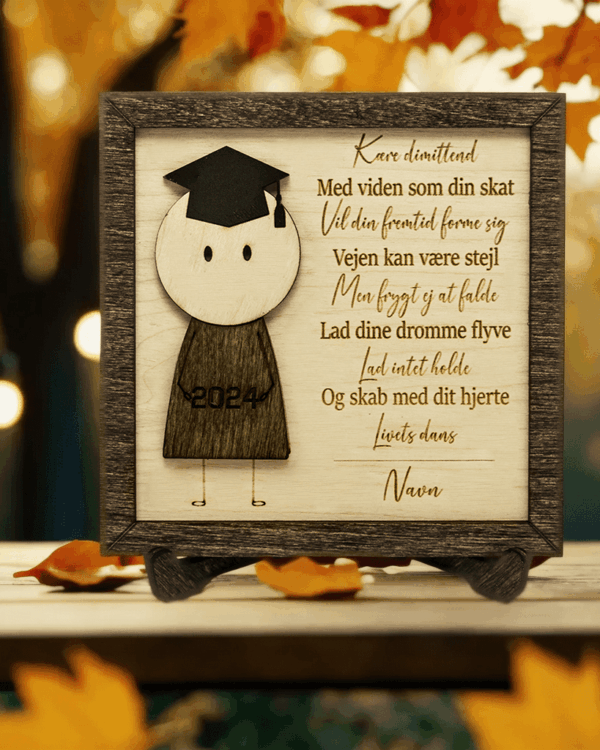 Kære dimittend
Med viden som din skat
Vil din fremtid forme sig
Vejen kan være stejl
Men frygt ej at falde
Lad dine drømme flyve
Lad intet holde
Og skab med dit hjerte
Livets dans
Navn
2024